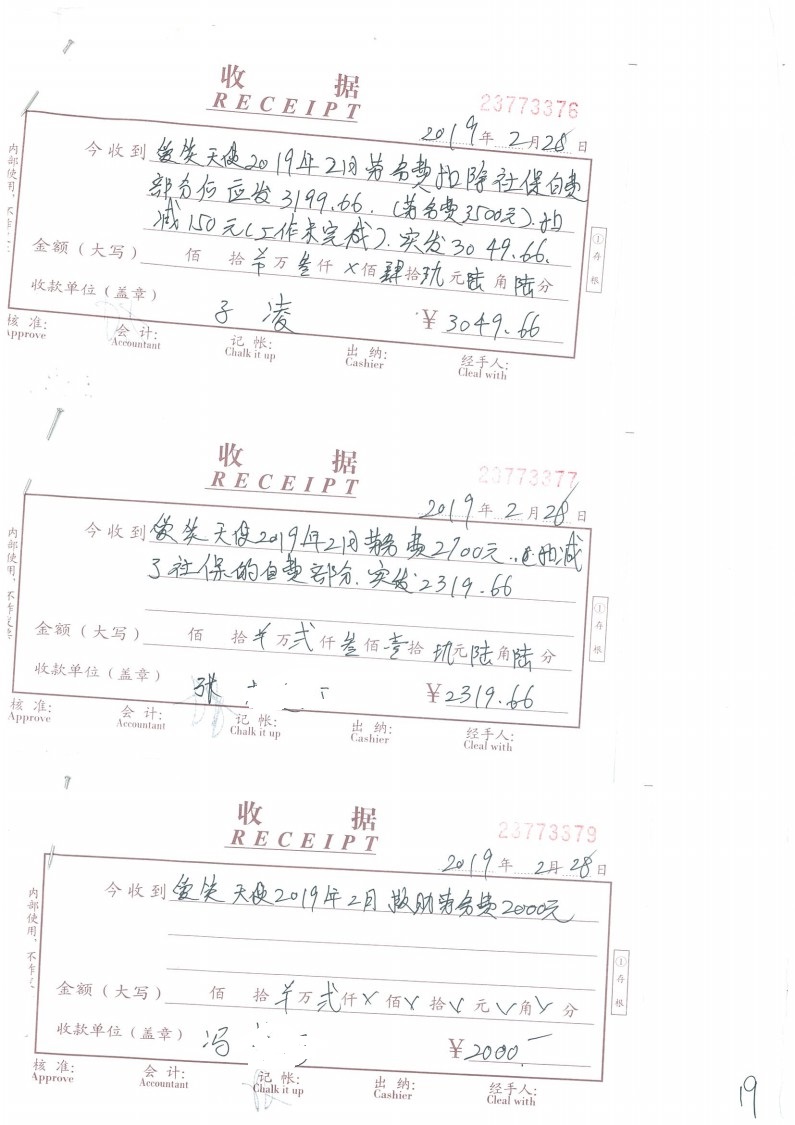 收 据
RECEIPT
23773376
2019年 2月28日
今收到 爱笑天使2019年2月劳务费扣除社保自费
部分后应发3199.66.(劳务费3500元).扣
减150元(工作未完成).实发3049.66.
金额(大写) 佰 拾 万叁仟×佰肆拾玖元陆角陆分
收款单位(盖章) 子凌
¥3049.66
内部使用,不作
①存根
核 准: 会 计: 记 帐: 出 纳: 经手人:
Approve Accountant Chalk it up Cashier Cleal with
收 据
RECEIPT
23773377
2019年 2月28日
今收到 爱笑天使2019年2月劳务费2700元.,扣减
了社保的自费部分.实发2319.66
金额(大写) 佰 拾 万贰仟叁佰壹拾玖元陆角陆分
收款单位(盖章) 张
¥2319.66
内部使用,不作
①存根
核 准: 会 计: 记 帐: 出 纳: 经手人:
Approve Accountant Chalk it up Cashier Cleal with
收 据
RECEIPT
23773379
2019年 2月28日
今收到 爱笑天使2019年2月 劳务费2000元
金额(大写) 佰 拾 万贰仟 佰 拾 元 角 分
收款单位(盖章) 冯
¥2000
内部使用,不作
①存根
核 准: 会 计: 记 帐: 出 纳: 经手人:
Approve Accountant Chalk it up Cashier Cleal with
19